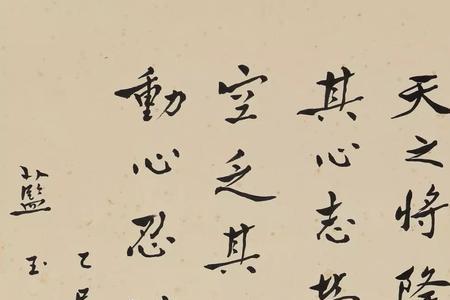 天之將降
其心志
空乏其
動心忍
乙
藍玉